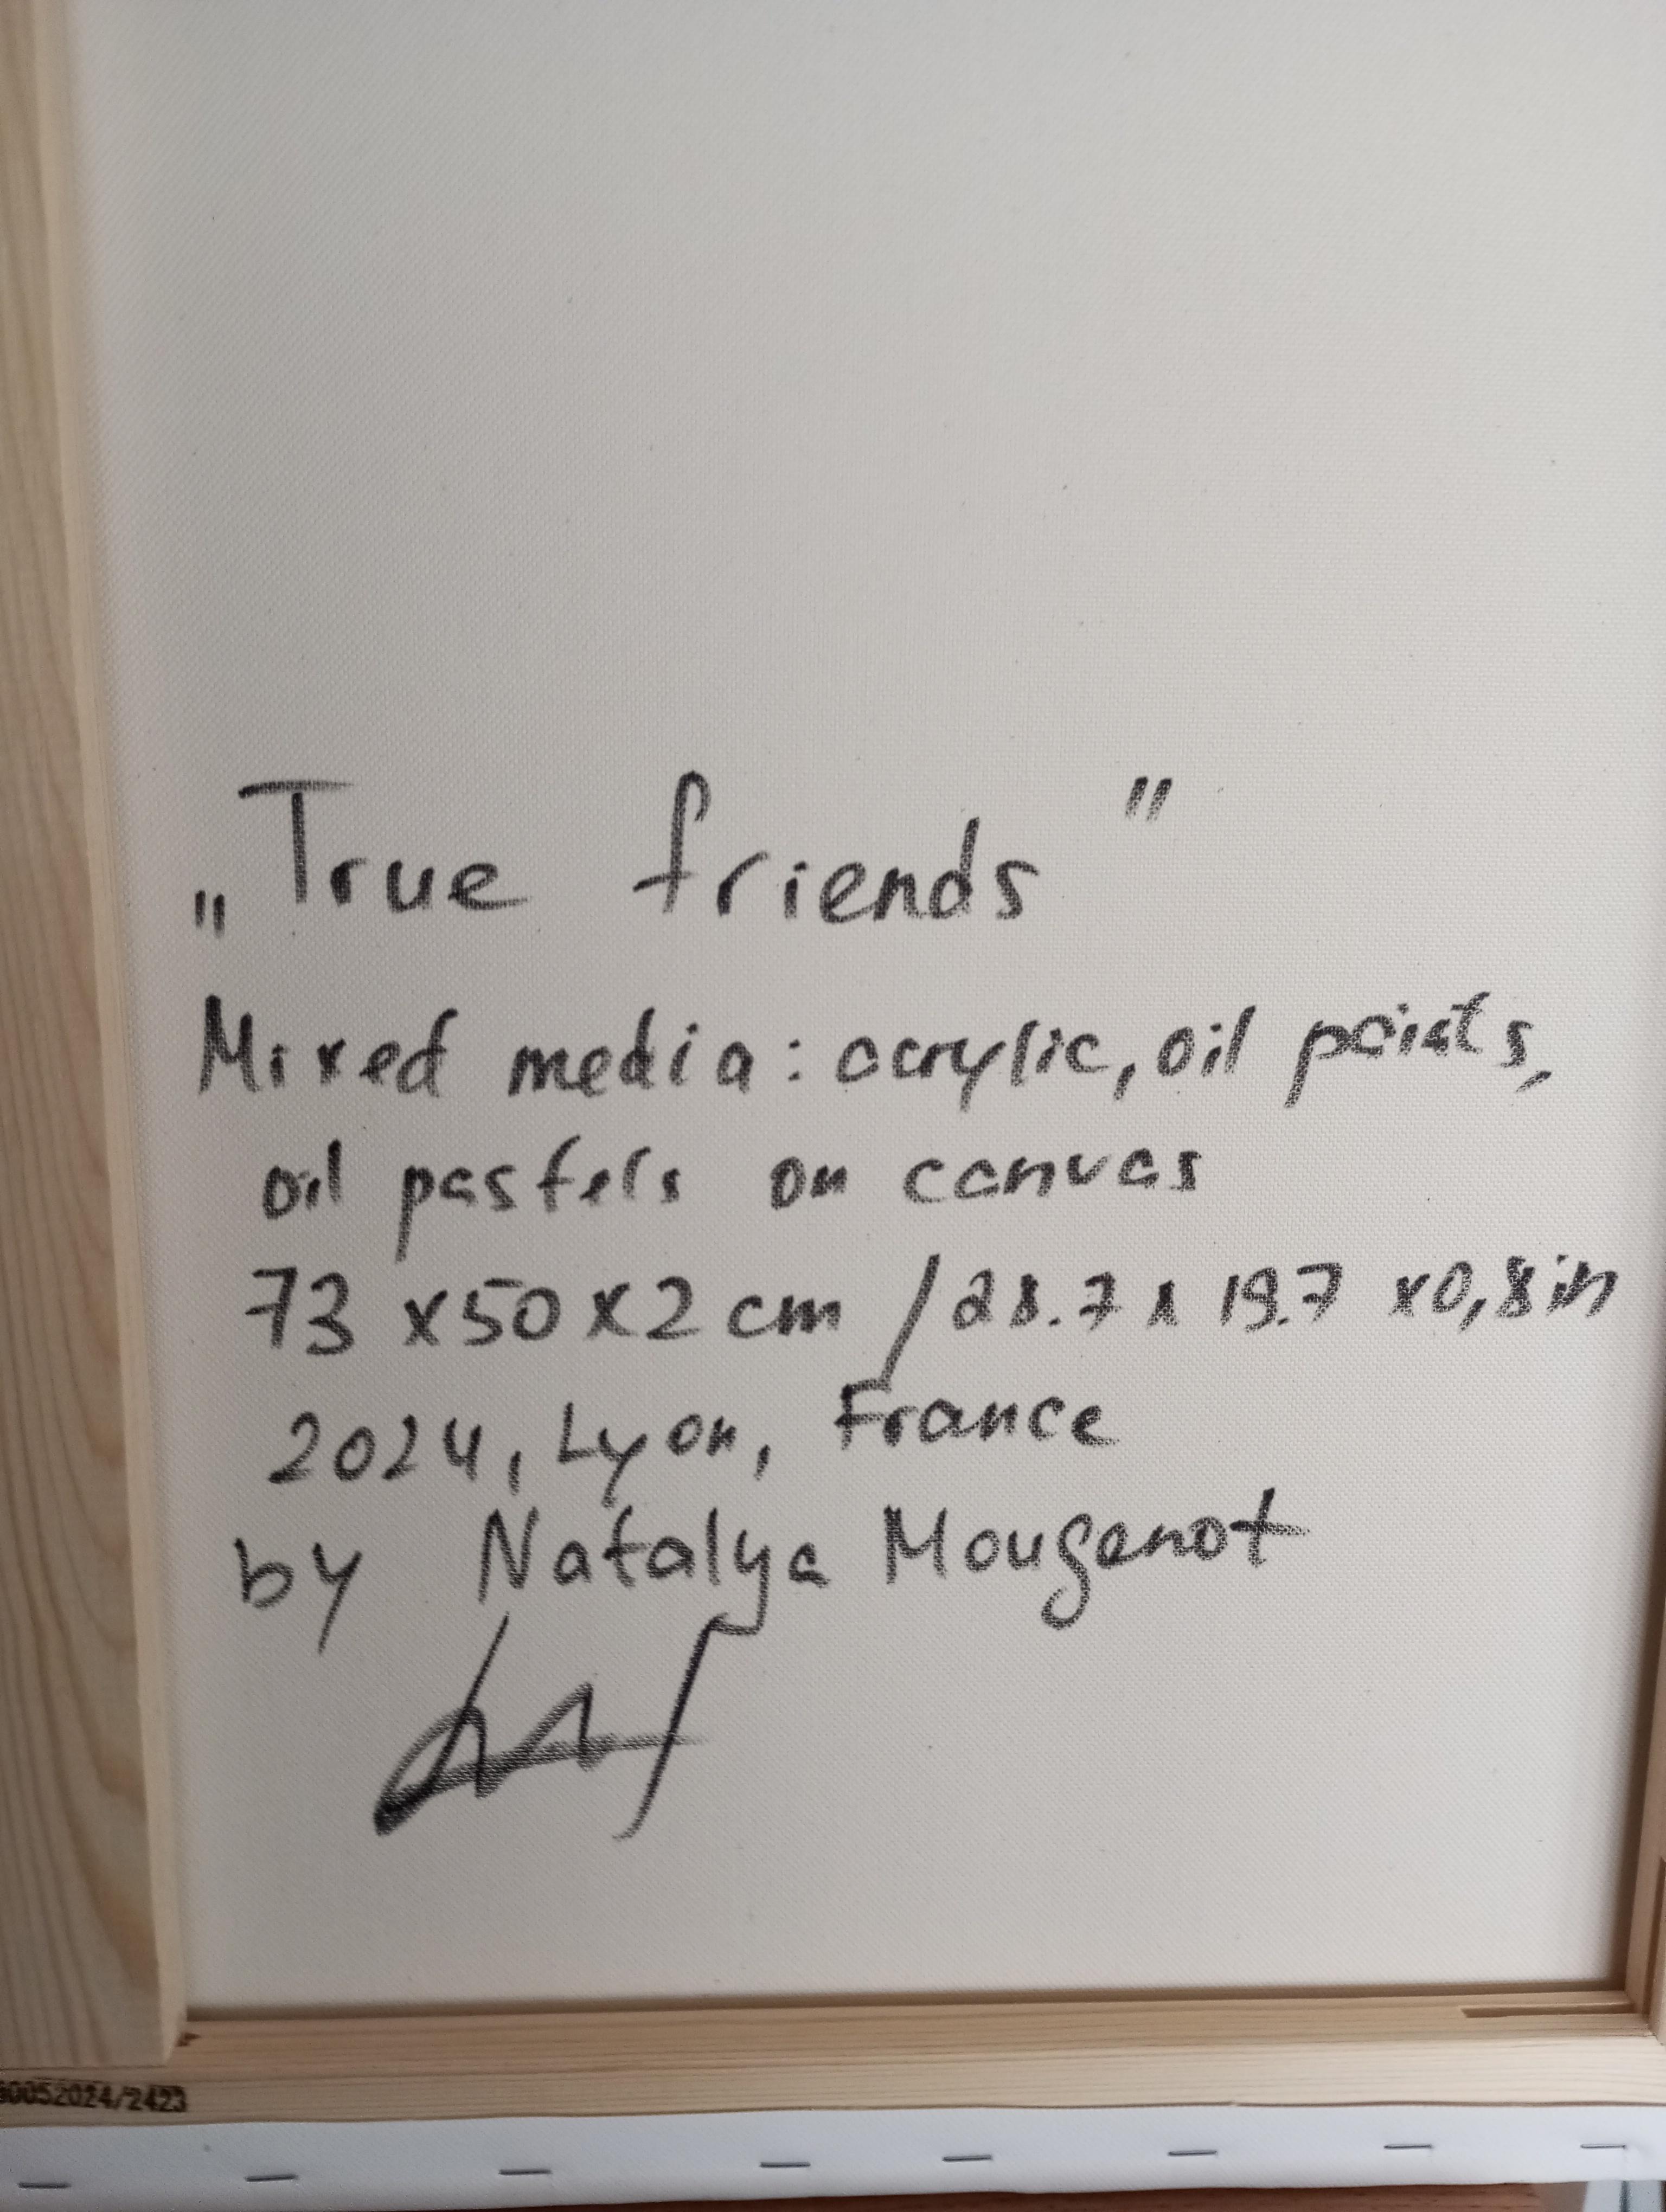 „True friends"
Mixed media: acrylic, oil paints,
oil pastels on canvas
73 x 50 x 2 cm / 28.7 x 19.7 x 0,8 in
2024, Lyon, France
by Natalya Mougenot
0052024/2423